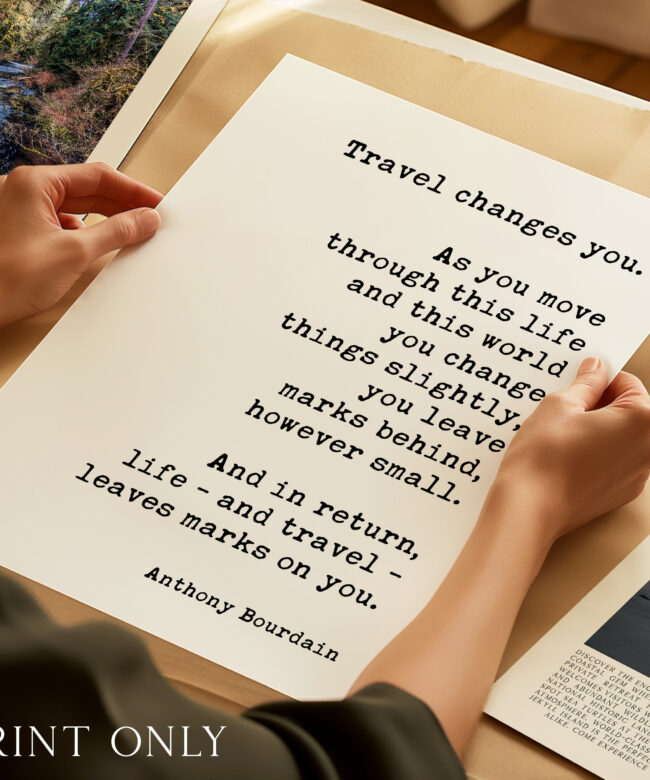 Travel changes you.
As you move
through this life
and this world
you change
things slightly,
you leave
marks behind,
however small.
And in return,
life - and travel -
leaves marks on you.
Anthony Bourdain
RINT ONLY
DISCOVER THE
COASTAL GEM
PRIVATE RETREAT
WELCOMES VISITORS
AND ABUNDANT
NATIONAL HISTORIC
SPOT SEA TURTLES AT THE
ATMOSPHERE, WORLD-CLASS
JEKYLL ISLAND IS THE
ALIKE. COME EXPERIENCE